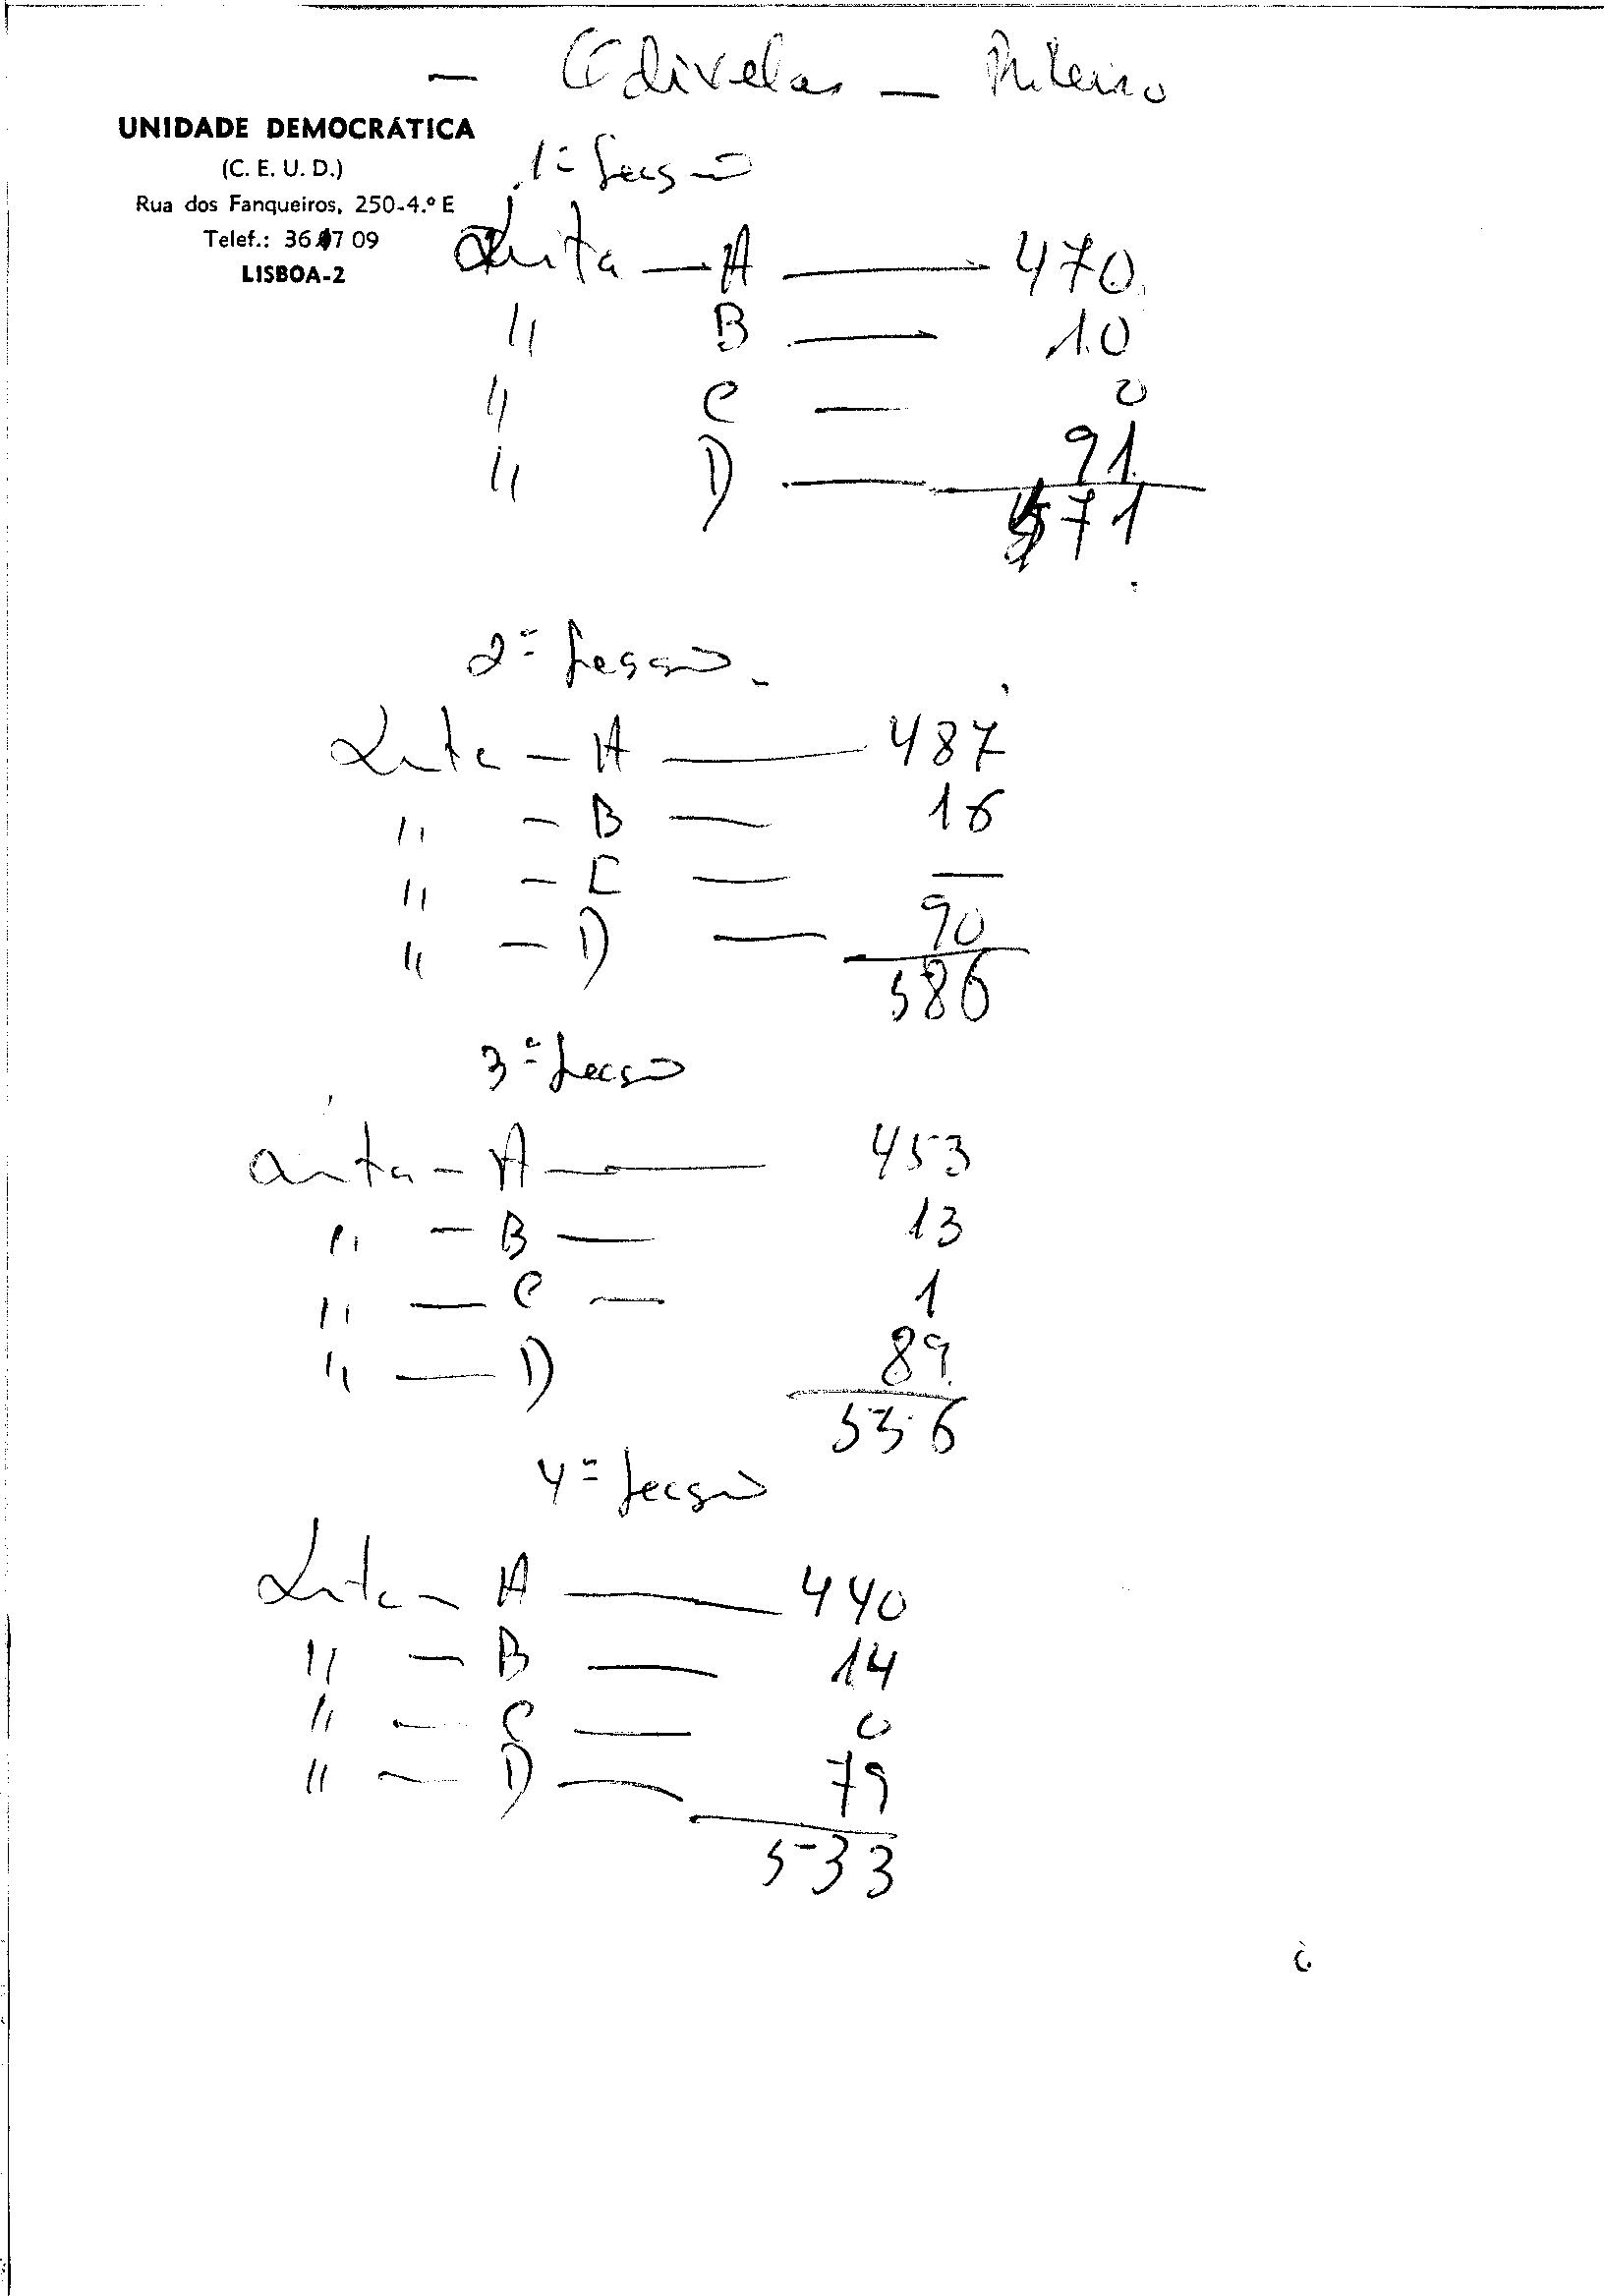 - Odivelas -
UNIDADE DEMOCRÁTICA
(C. E. U. D.)
Rua dos Fanqueiros, 250-4.º E
Telef.: 36 47 09
LISBOA-2
1ª Secção
Lista - A - 470
" B - 10
" C - 0
" D - 91
571
2ª Secção -
Lista - A - 487
" - B - 16
" - C - —
" - D - 90
586
3ª Secção
Lista - A - 453
" - B - 13
" - C - 1
" - D 89
556
4ª Secção
Lista - A - 440
" - B - 14
" - C - 0
" - D - 79
533